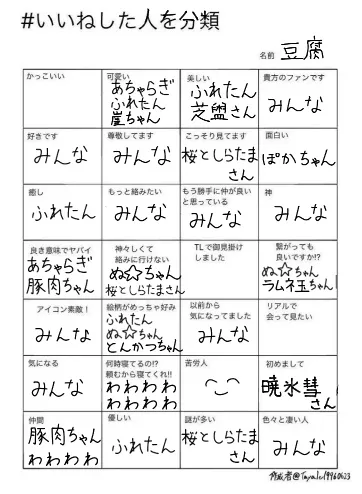 #いいねした人を分類
名前 豆腐
かっこいい
可愛い
あちゃらぎ
ふれたん
崖ちゃん
美しい
ふれたん
芝盥さん
貴方のファンです
みんな
好きです
みんな
尊敬してます
みんな
こっそり見てます
桜としらたま
さん
面白い
ぽかちゃん
癒し
ふれたん
もっと絡みたい
みんな
もう勝手に仲が良い
と思っている
みんな
神
みんな
良き意味でヤバイ
あちゃらぎ
豚肉ちゃん
神々しくて
絡みに行けない
ぬ☆ちゃん
桜としらたまさん
TLで御見掛け
しました
繋がっても
良いですか!?
ぬ☆ちゃん
ラムネ玉ちゃん
アイコン素敵!
みんな
絵柄がめっちゃ好み
ふれたん
ぬ☆ちゃん
とんかつちゃん
以前から
気になってました
みんな
リアルで
会って見たい
気になる
みんな
何時寝てるの!?
頼むから寝てくれ!!
わわわわ
わわわわ
苦労人
初めまして
暁氷彗
さん
仲間
豚肉ちゃん
わわわわ
優しい
ふれたん
謎が多い
桜としらたま
さん
色々と凄い人
みんな